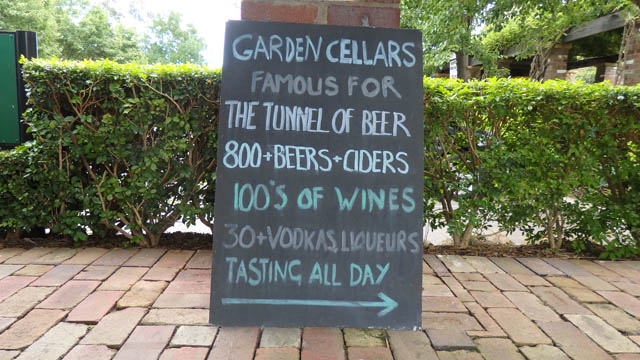 GARDEN CELLARS
FAMOUS FOR
THE TUNNEL OF BEER
800+BEERS+CIDERS
100'S OF WINES
30+VODKAS, LIQUEURS
TASTING ALL DAY